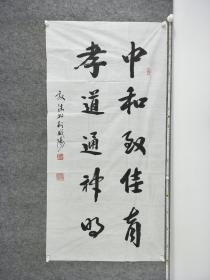 中和致佳育
孝道通神明